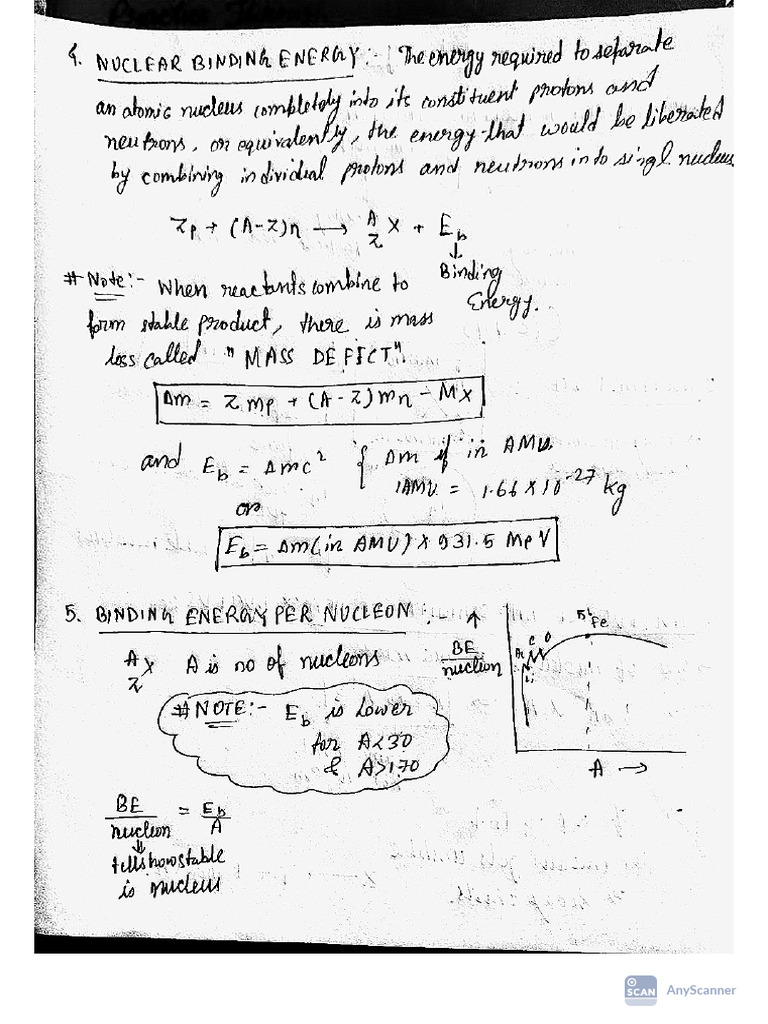 4. NUCLEAR BINDING ENERGY :- The energy required to separate
an atomic nucleus completely into its constituent protons and
neutrons, or equivalently, the energy that would be liberated
by combining individual protons and neutrons into singl nucleus
Zp + (A-Z)n ⟶ ᴬ_Z X + E_b
↓
Binding
Energy.
# Note:- When reactants combine to
form stable product, there is mass
loss called "MASS DEFECT"
Δm = Z mp + (A-Z) mn - Mx
and E_b = Δmc² { Δm if in AMU.
1AMU = 1.66 × 10⁻²⁷ kg
or
E_b = Δm (in AMU) × 931.5 MeV
5. BINDING ENERGY PER NUCLEON :-
ᴬ_Z X A is no of nucleons
# NOTE:- E_b is lower
for A<30
& A>170
↑
BE
nucleon
C O
56 Fe
A →
BE/nucleon = E_b/A
↓
tells how stable
is nucleus
SCAN AnyScanner